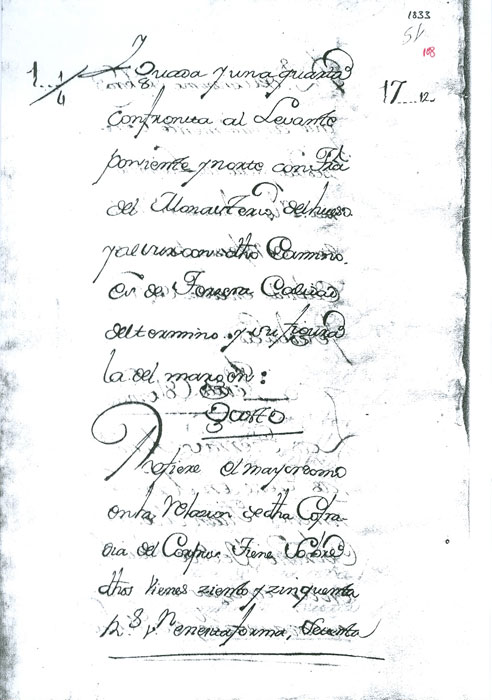 1833
51
108
1 1/4
17 12
quada y una quarta
confronta al Levante
poniente y norte con
del Monasterio del
y al sur con dho Camino.
es de Tercera Calidad
del termino y su figura
la del margen:
Gasto
Refiere el mayordomo
en la Relazion de dha Cofra
dia del Corpus tiene Sobre
dhos vienes ziento y zinquenta
en esta forma, Setenta